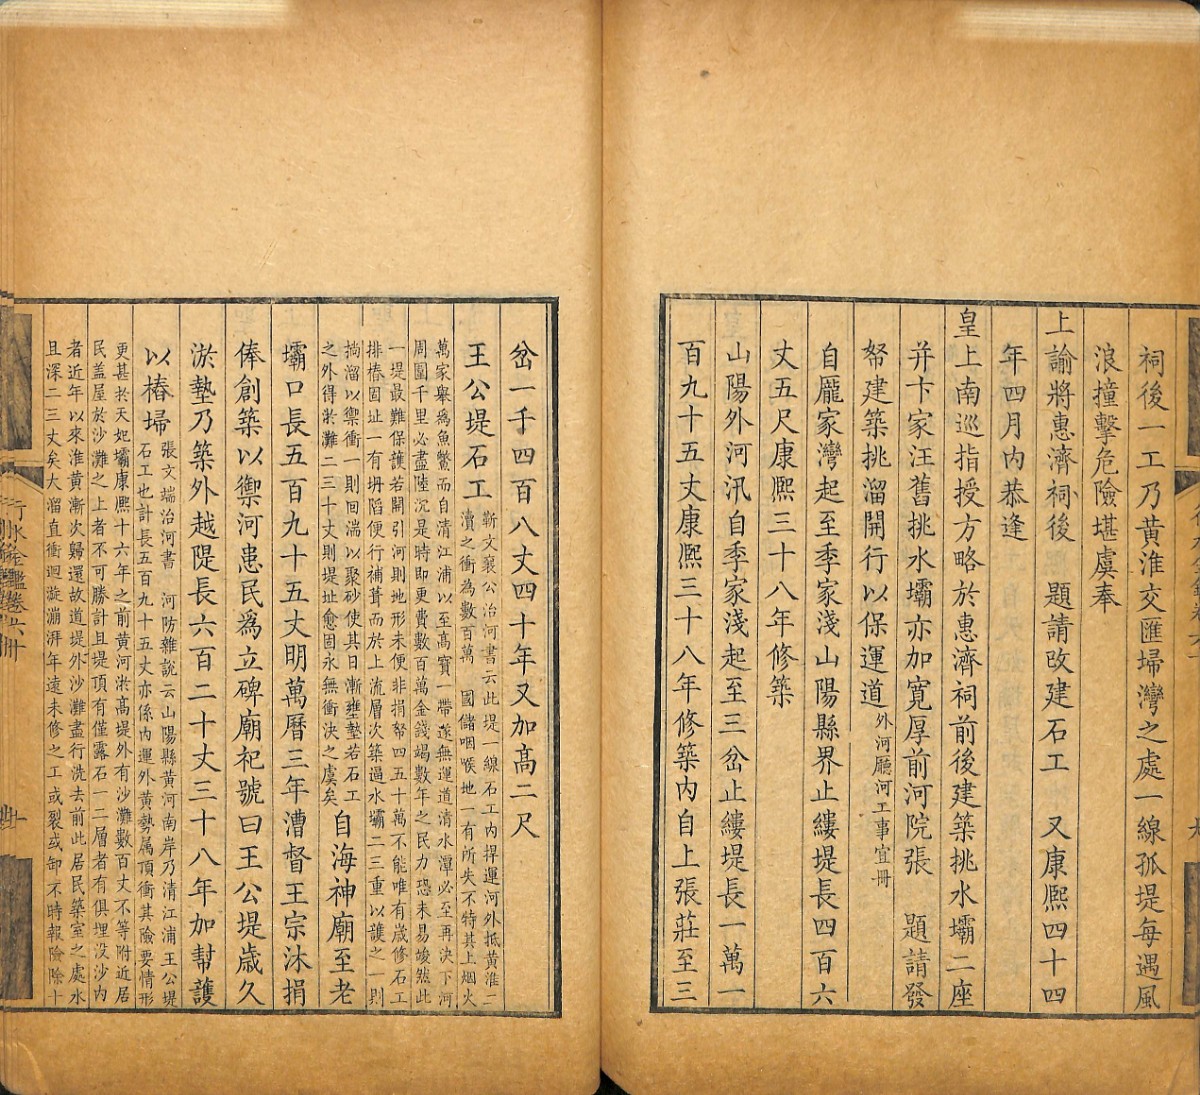 祠後一工乃黄淮交匯埽灣之處一線孤堤每遇風
浪撞擊危險堪虞奉
上諭將惠濟祠後 題請改建石工 又康熙四十四
年四月内恭逢
皇上南巡指授方略於惠濟祠前後建築挑水壩二座
并卞家汪舊挑水壩亦加寬厚前河院張 題請發
帑建築挑溜開行以保運道外河廳河工事宜冊
自龐家灣起至季家淺山陽縣界止縷堤長四百六
丈五尺康熙三十八年修築
山陽外河汛自季家淺起至三岔止縷堤長一萬一
百九十五丈康熙三十八年修築内自上張莊至三
岔一千四百八丈四十年又加高二尺
王公堤石工靳文襄公治河書云此堤一線石工内捍運河外抵黄淮二
瀆之衝為數百萬 國儲咽喉地一有所失不特其上烟火
萬家舉爲魚鱉而自清江浦以至高寶一帶遂無運道清水潭必至再決下河
周圍千里必盡陸沉是時即更費數百萬金錢竭數年之民力恐未易竣然此
一堤最難保護若開引河則地形未便非捐帑四五十萬不能唯有歲修石工
排樁固址一有坍䧟便行補葺而於上流層次築逼水壩二三重以護之一則
撐溜以禦衝一則回湍以聚砂使其日漸壅墊若石工
之外得淤灘二三十丈則堤址愈固永無衝決之虞矣自海神廟至老
壩口長五百九十五丈明萬曆三年漕督王宗沐捐
俸創築以禦河患民爲立碑廟祀號曰王公堤歲久
淤墊乃築外越隄長六百二十丈三十八年加幫護
以樁埽張文端治河書 河防雜說云山陽縣黄河南岸乃清江浦王公堤
石工也計長五百九十五丈亦係内運外黄勢属頂衝其險要情形
更甚於天妃壩康熙十六年之前黄河淤高堤外有沙灘數百丈不等附近居
民盖屋於沙灘之上者不可勝計且堤頂有僅露石一二層者有俱埋没沙内
者近年以來淮黄漸次歸還故道堤外沙灘盡行洗去前此居民築室之處水
且深二三丈矣大溜直衝迴漩漰湃年遠未修之工或裂或卸不時報險除十
行水金鑑卷六十